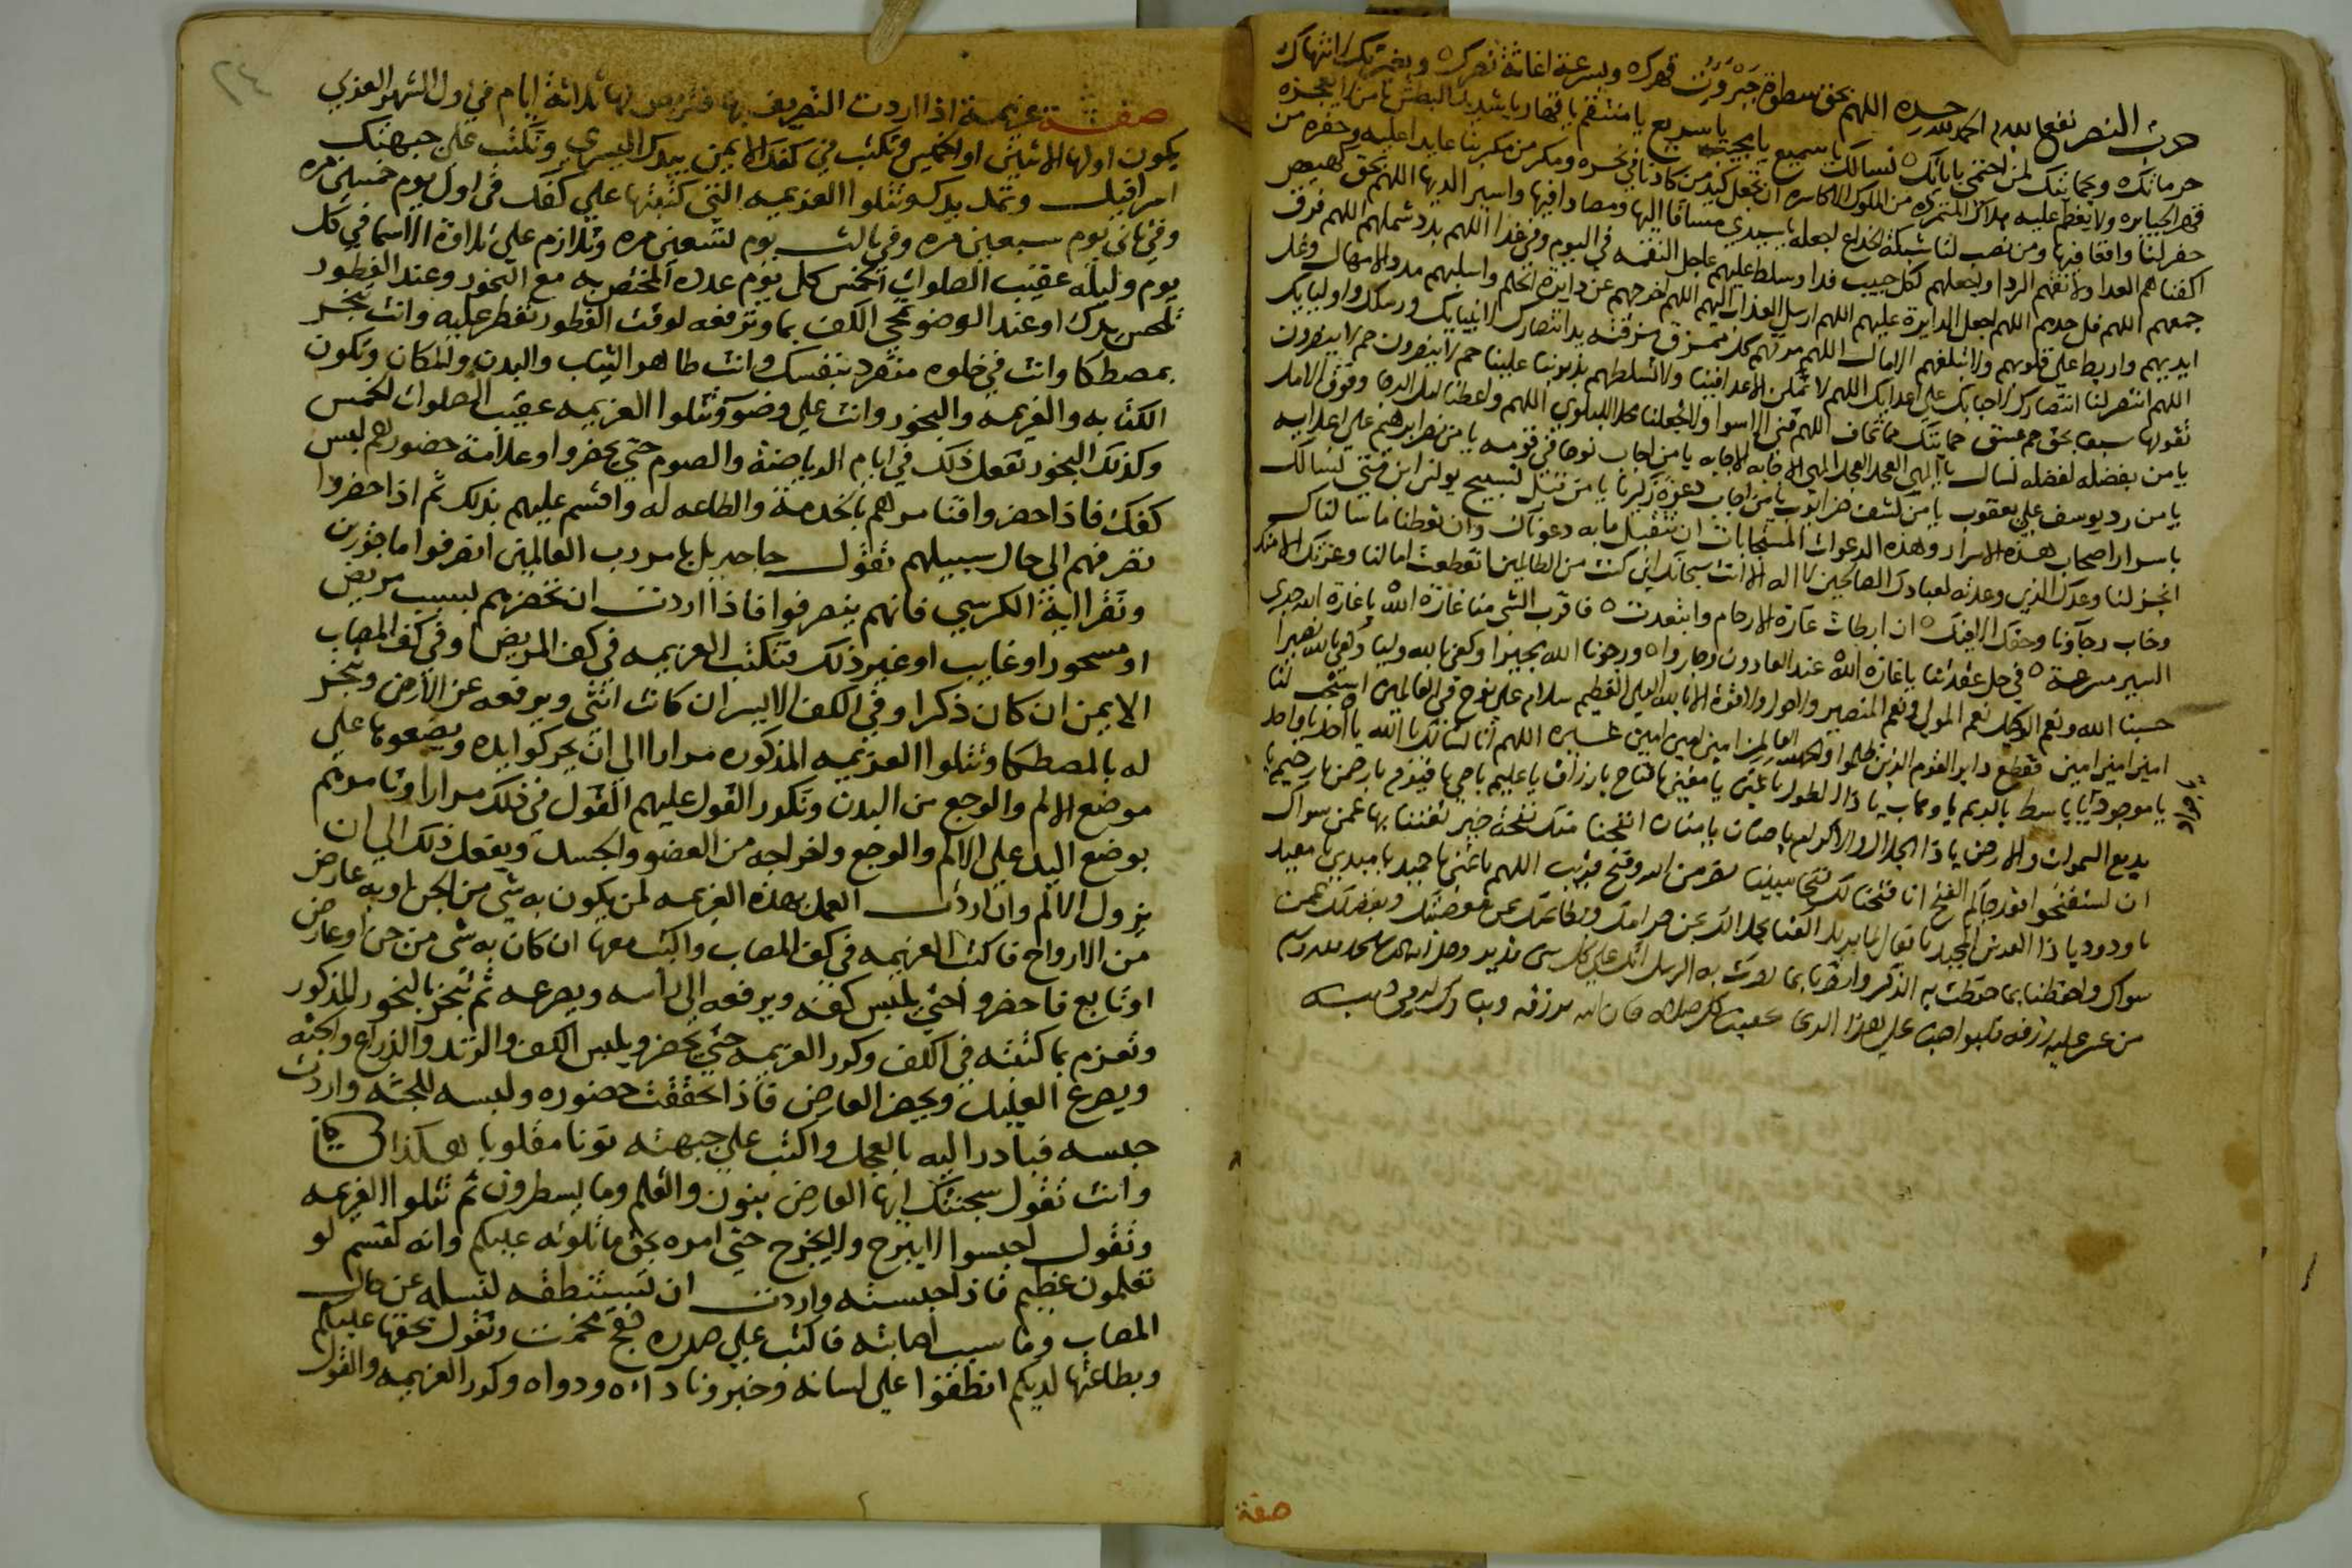 حزب النصر نفعنا الله به الحمد لله وحده اللهم بحق سطوة جبروت قهرك وبسرعة اغاثة نصرك وبغيرتك لانتهاك
حرماتك وبحمايتك لمن احتمى باياتك نسالك يا سميع يا مجيب يا سريع يا منتقم يا قهار يا شديد البطش يا من لا يعجزه
قهر الجبابره ولا يعظم عليه هلاك المتمرده من الملوك الاكاسره ان تجعل كيد من كادنا في نحره ومكر من مكر بنا عايدا عليه وحفرة من
حفر لنا واقعا فيها ومن نصب لنا شبكة الخداع اجعله يا سيدي مساقا اليها ومصادا فيها واسير الديها اللهم بحق كهيعص
اكفنا هم العدا ولقهم الردا واجعلهم لكل حبيب فدا وسلط عليهم عاجل النقمه في اليوم وفي غدا اللهم بدد شملهم اللهم فرق
جمعهم اللهم فل حدهم اللهم اجعل الدايرة عليهم اللهم ارسل العذاب اليهم اللهم اخرجهم عن دايرة الحلم واسلبهم مدد الامهال وغل
ايديهم واربط على قلوبهم ولا تبلغهم الامال اللهم مزقهم كل ممزق مزقته انتصارا لانبيايك ورسلك واوليايك
اللهم انتصر لنا انتصارك لاحبابك على اعدايك اللهم لا تمكن الاعدا فينا ولا تسلطهم بذنوبنا علينا حم لا ينصرون حم لا ينصرون
تقولها سبعا بحق حم عسق حمايتك مما نخاف اللهم قني الاسوا ولا تجعلنا محلا للبلوي اللهم واعطنا امل الرجا وفوق الامل
يا من بفضله لفضله نسال يا الهي العجل العجل الهي الاجابه الاجابه يا من اجاب نوحا في قومه يا من نصر ابراهيم على اعدايه
يا من رد يوسف على يعقوب يا من كشف ضر ايوب يا من اجاب دعوة زكريا يا من قبل تسبيح يونس ابن متى نسالك
باسرار اصحاب هذه الاسرار وهذه الدعوات المستجابات ان تتقبل ما به دعوناك وان تعطنا ما سالناك
انجز لنا وعدك الذي وعدته لعبادك الصالحين لا اله الا انت سبحانك اني كنت من الظالمين انقطعت امالنا وعزتك الا منك
وخاب رجاونا وحقك الا فيك ان ابطات غارة الارحام وابتعدت فاقرب الشي منا غارة الله يا غارة الله جدي
السير مسرعة في حل عقدتنا يا غارة الله عدت العادون وجاروا ورجونا الله مجيرا وكفى بالله وليا وكفى بالله نصيرا
حسبنا الله ونعم الوكيل نعم المولى ونعم النصير ولا حول ولا قوة الا بالله العلي العظيم سلام على نوح في العالمين استجب لنا
امين امين امين فقطع دابر القوم الذين ظلموا والحمد لله رب العالمين امين امين امين اللهم انا نسالك يا الله يا احد يا واحد
يا موجود يا باسط يا كريم يا وهاب يا ذا الطول يا غني يا مغني يا فتاح يا رزاق يا عليم يا حي يا قيوم يا رحمن يا رحيم يا
بديع السموات والارض يا ذا الجلال والاكرام يا حنان يا منان انفحنا منك نفحة خير تغننا بها عمن سواك
ان تستفتحوا فقد جاكم الفتح انا فتحنا لك فتحا مبينا نصر من الله وفتح قريب اللهم يا غني يا حميد يا مبدي يا معيد
يا ودود يا ذا العرش المجيد يا فعال لما يريد اكفنا بحلالك عن حرامك وبطاعتك عن معصيتك وبفضلك عمن
سواك واحفظنا بما حفظت به الذكر وانصرنا بما نصرت به الرسل انك على كل شي قدير
من عسر عليه رزقه فليواظب على هذا الدعا عقيب كل صلاه فان الله يرزقه ويبارك له
صفة
٢٤
صفة عزيمة اذا اردت التصريف بها فتريض لها ثلاثة ايام في اول الشهر العربي
يكون اولها الاثنين او الخميس وتكتب في كفك الايمن بيدك اليسري وتكتب على جبهتك
اسرافيل وتمد يدك وتتلوا العزيمه التي كتبتها علي كفك في اول يوم خمسين مره
وفي ثاني يوم سبعين مره وفي ثالث يوم تسعين مره وتلازم على تلاوة الاسما في كل
يوم وليله عقيب الصلوات الخمس كل يوم عدده المختص به مع البخور وعند الفطور
تلحس يدك او عند الوضو تمحي الكف بما وترفعه لوقت الفطور تفطر عليه وانت تبخر
بمصطكا وانت في خلوه منفرد بنفسك وانت طاهر الثياب والبدن والمكان وتكون
الكتابه والعزيمه والبخور وانت علي وضو وتتلوا العزيمه عقيب الصلوات الخمس
وكذلك البخور تفعل ذلك في ايام الرياضة والصوم حتي يحضروا وعلامة حضورهم لبس
كفك فاذا حضروا فتامرهم بالخدمة والطاعه له واقسم عليهم بذلك ثم اذا حضروا
تصرفهم الى حال سبيلهم تقول جا جبريل بامر رب العالمين انصرفوا ماجورين
وتقرا اية الكرسي فانهم ينصرفوا فاذا اردت ان تحضرهم لسبب مريض
او مسحور او غايب او غير ذلك فتكتب العزيمه في كف المريض او في كف المصاب
الايمن ان كان ذكرا وفي الكف الايسر ان كانت انثي ويرفعه عن الارض وتبخر
له بالمصطكا وتتلوا العزيمه المذكوره مرارا الي ان يحركوا يده ويضعوها علي
موضع الالم والوجع من البدن وتكرر القول عليهم القول في ذلك مرارا وتامرهم
بوضع اليد علي الالم والوجع واخراجه من العضو والجسد ويفعل ذلك الي ان
يزول الالم وان اردت العمل بهذه العزيمه لمن يكون به شي من الجن او به عارض
من الارواح فاكتب العزيمه في كف المصاب واكتب معها ان كان به شي من جن او عارض
او تابع فاحضروا حتي يلبس كفه ويرفعه الى راسه ويصرعه ثم تبخر بالبخور المذكور
وتعزم بما كتبته في الكف وكرر العزيمه حتي يحضر ويلبس الكف والزند والذراع والجثه
ويصرع العليل ويحضر العارض فاذا تحققت حضوره ولبسه للجثه واردت
حبسه فبادر اليه بالعجل واكتب علي جبهته نونا مقلوبا هكذا
وانت تقول سجنتك ايها العارض بنون والقلم وما يسطرون ثم تتلوا العزيمه
وتقول احبسوا لا يبرح ولا يخرج حتي امره بحق ما تلوته عليكم وانه لقسم لو
تعلمون عظيم فاذا حبسته واردت ان تستنطقه لتساله عن حال
المصاب وما سبب اصابته فاكتب على صدره وتقول بحقها عليكم
وبطاعتها لديكم انطقوا على لسانه وخبرونا داءه ودواه وكرر العزيمه والقول